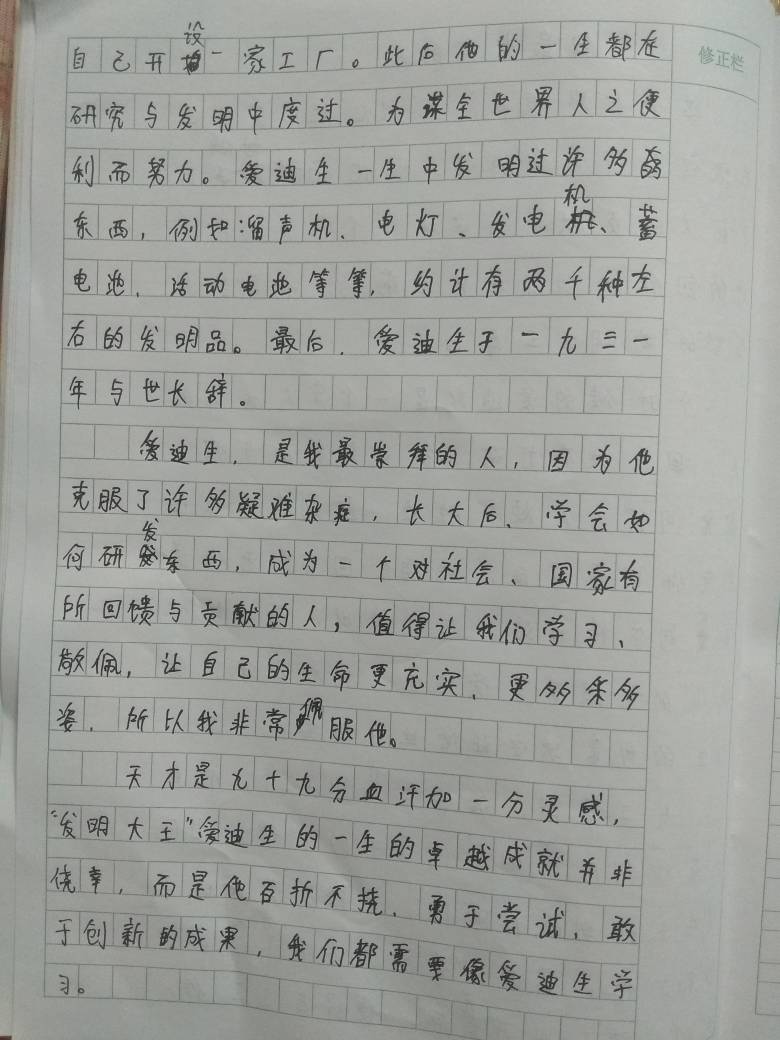 修正栏
自己开设一家工厂。此后他的一生都在
研究与发明中度过。为谋全世界人之便
利而努力。爱迪生一生中发明过许多
东西,例如溜声机、电灯、发电机、蓄
电池、活动电池等等,约计有两千种左
右的发明品。最后,爱迪生于一九三一
年与世长辞。
爱迪生,是我最崇拜的人,因为他
克服了许多疑难杂症,长大后、学会如
何研发东西,成为一个对社会、国家有
所回馈与贡献的人,值得让我们学习、
敬佩,让自己的生命更充实、更多条多
姿,所以我非常佩服他。
天才是九十九分血汗加一分灵感,
“发明大王”爱迪生的一生的卓越成就并非
侥幸,而是他百折不挠、勇于尝试、敢
于创新的成果,我们都需要像爱迪生学
习。